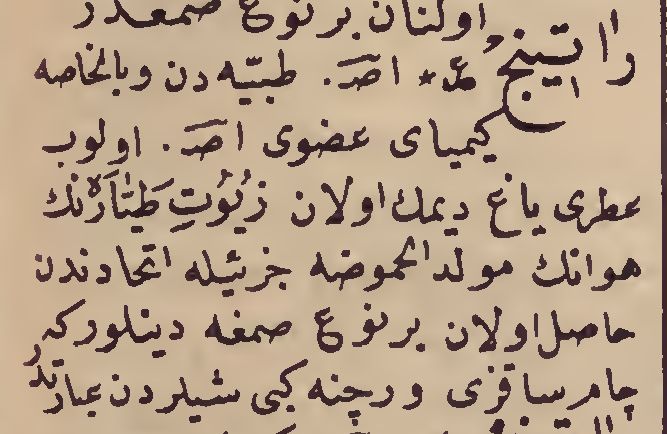 اولنان بر نوع صمغدر
راتينج ُ عؔ * اصـ . طبيّه دن و بالخاصه
كيمياى عضوى اصـ . اولوب
عطرى ياغ ديمك اولان زُيُوُتِ طَيَّارَهْ‌نك
هوانك مولد الحموضه جزئيله اتحادندن
حاصل اولان بر نوع صمغه دينلور كه
چام ساقزى و رچنه كبى شيلردن عبارتدر